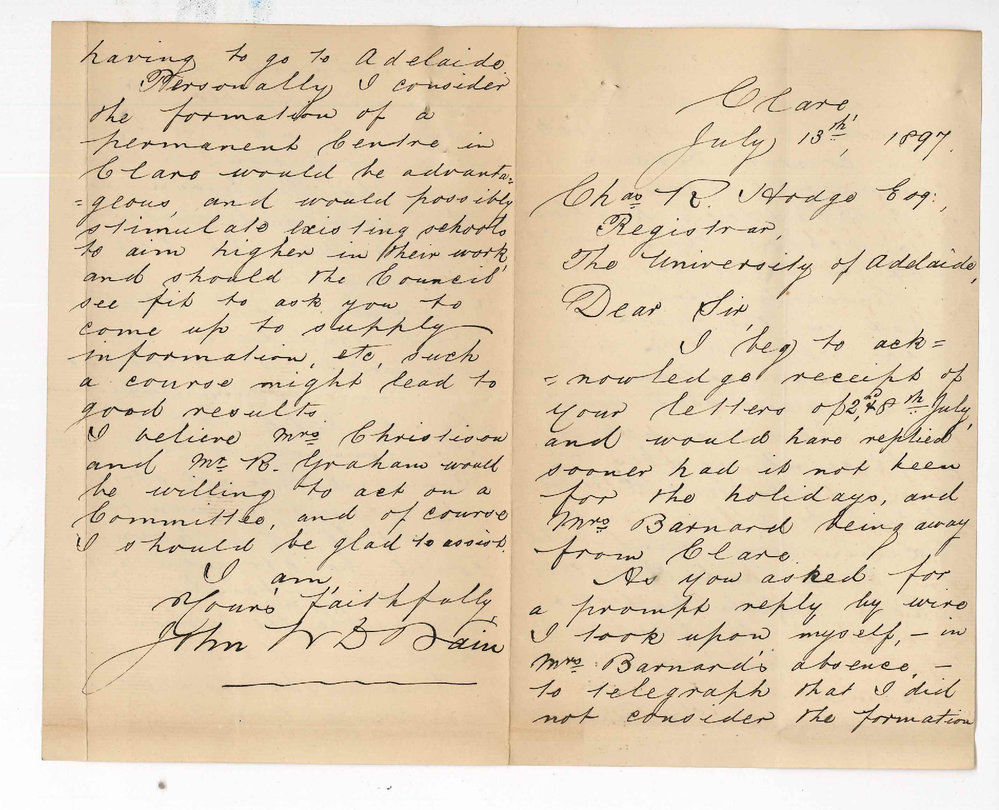 Clare
July 13th, 1897.
Chas R. Hodge Esq:,
Registrar,
The University of Adelaide,
Dear Sir,
I beg to ack=
=nowledge receipt of
your letters of 2nd & 8th July,
and would have replied
sooner had it not been
for the holidays, and
Mrs Barnard being away
from Clare.
As you asked for
a prompt reply by wire
I took upon myself, – in
Mrs Barnard's absence, –
to telegraph that I did
not consider the formation
having to go to Adelaide.
Personally I consider
the formation of a
permanent Centre in
Clare would be advanta=
=geous, and would possibly
stimulate existing schools
to aim higher in their work,
and should the Council
see fit to ask you to
come up to supply
information, etc, such
a course might lead to
good results.
I believe Mrs Christison
and Mr B. Graham would
be willing to act on a
Committee, and of course
I should be glad to assist.
I am,
Yours faithfully,
John W D Bain